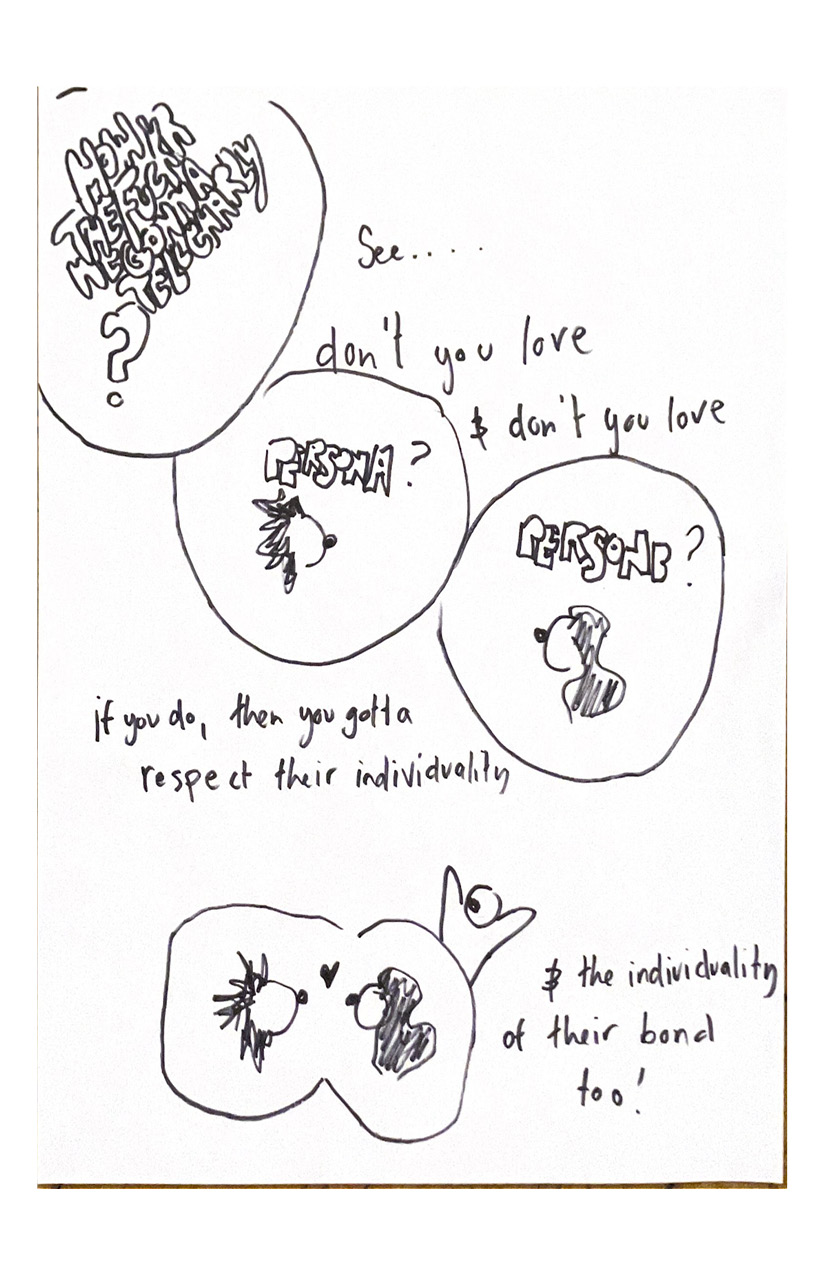 HOW
THE FUCK
WE GONNA
TELL CHARLY
?
See.....
don't you love
& don't you love
PERSONA?
PERSONB?
if you do, then you gotta
respect their individuality
& the individuality
of their bond
too!